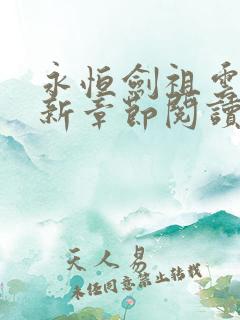 永恒劍祖雲
新章節閱讀
天人易
未经同意禁止转载